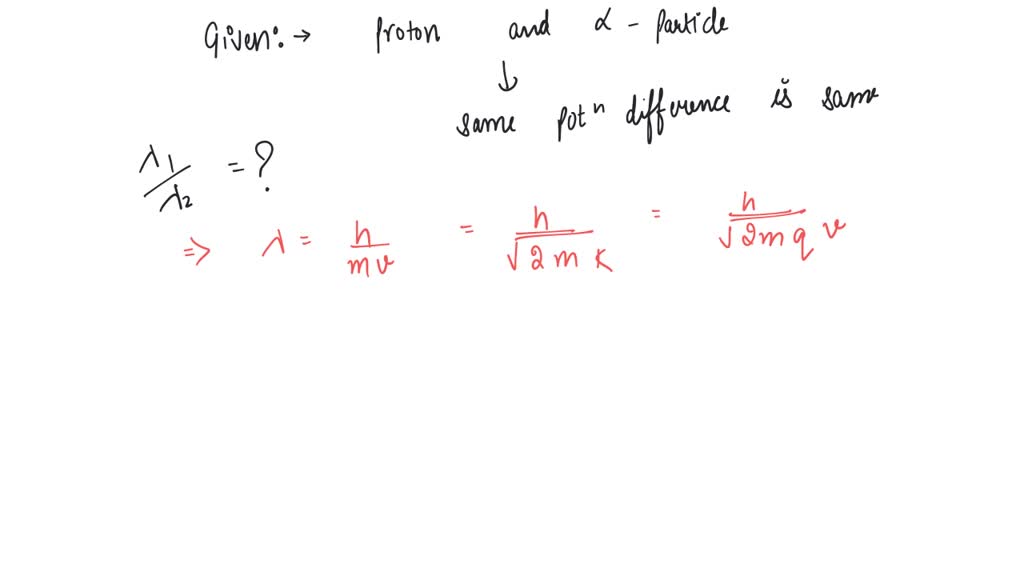 Given:→ Proton and α - Particle
↓
same potⁿ difference is same
λ1/λ2 = ?
=> λ = h/mv = h/√2mK = h/√2mqv